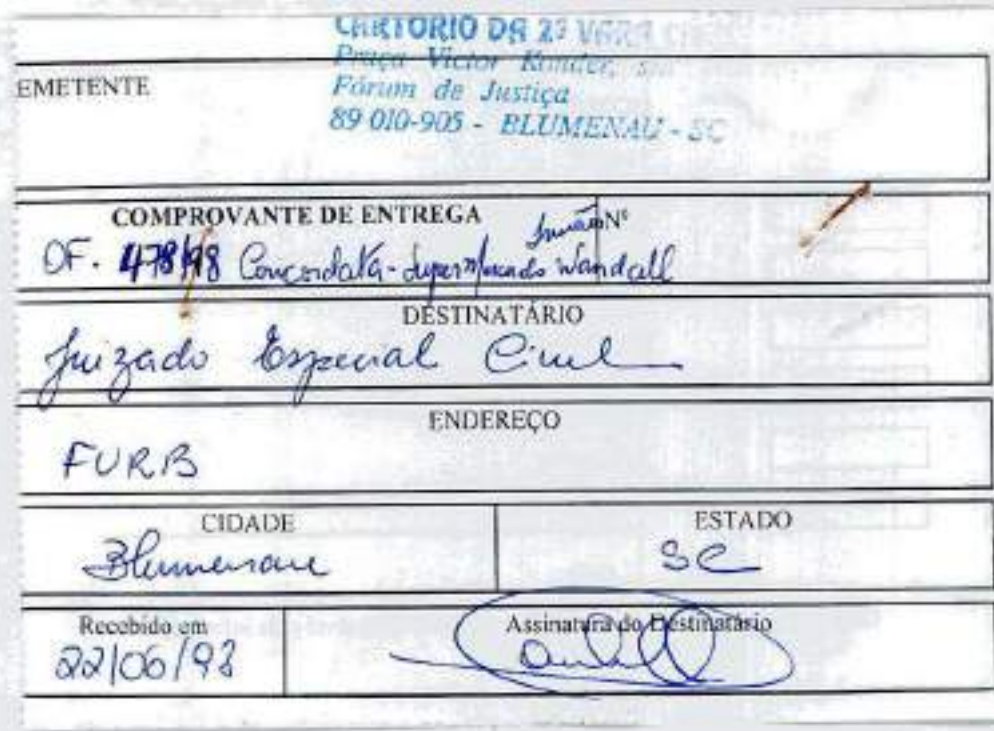 CARTORIO DA 2ª VARA
Praça Victor Konder, s/n
EMETENTE
Fórum de Justiça
89 010-905 - BLUMENAU - SC
COMPROVANTE DE ENTREGA Nº
OF. 478/98 Concordata - Supermercado Irmãos Wandall
DESTINATÁRIO
Juizado Especial Cível
ENDEREÇO
FURB
CIDADE
Blumenau
ESTADO
SC
Recebido em
22/06/98
Assinatura do Destinatário